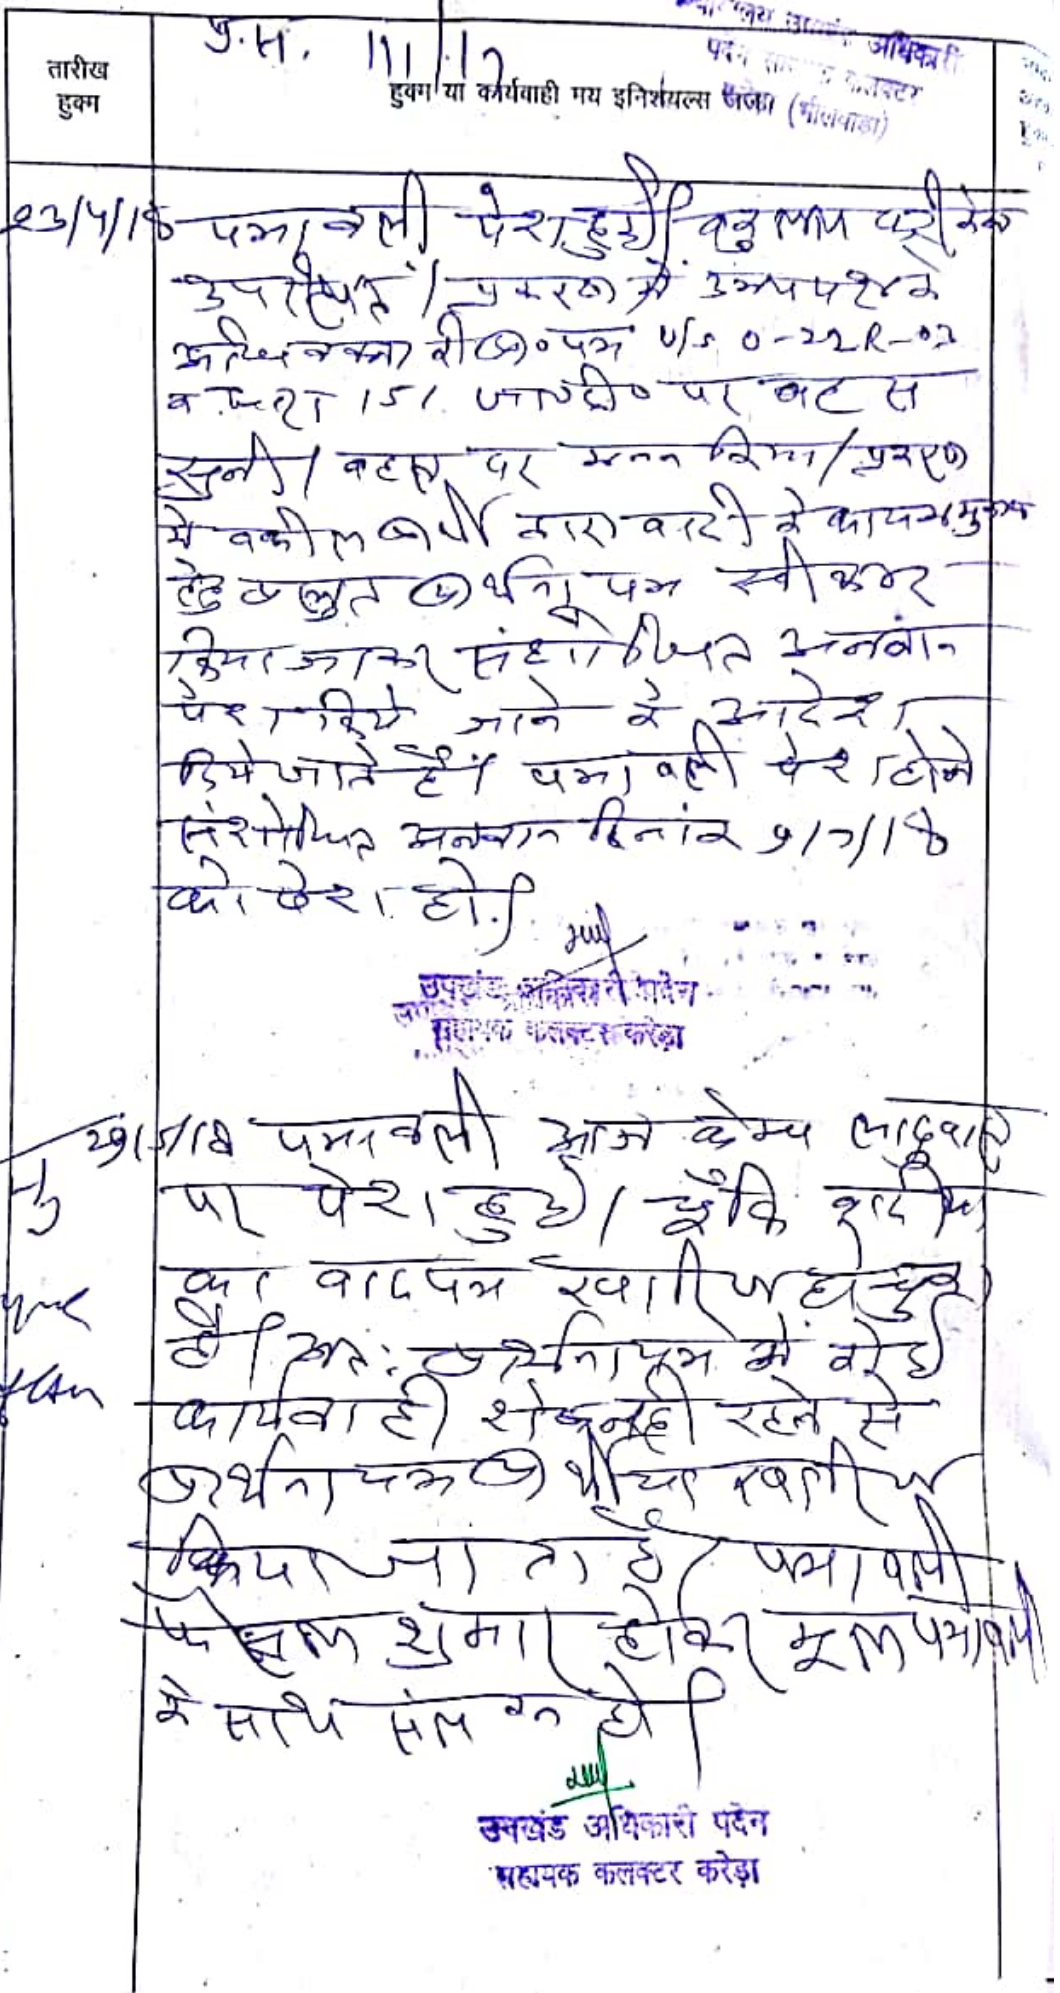 प्र.सं. 111/17
अधिकारी
पदेन सहायक कलक्टर
करेड़ा (भीलवाड़ा)
तारीख
हुक्म
हुक्म या कार्यवाही मय इनिशयल्स जज
23/4/18 पत्रावली पेश हुई। वकुलाय फरीकेन
उपस्थित। प्रकरण में उभयपक्ष के
अधिवक्ता की प्रा० पत्र U/s O-22R-03
व धारा 151 जा०दी० पर बहस
सुनी। बहस पर मनन किया। प्रकरण
में वकील प्रार्थी द्वारा वादी के कायममुकाम
हेतु प्रस्तुत प्रार्थना पत्र स्वीकार
किया जाकर संशोधित अनवान
पेश किये जाने के आदेश
दिये जाते हैं। पत्रावली पेश होने
संशोधित अनवान दिनांक 9/7/18
को पेश हो।
उपखंड अधिकारी पदेन
सहायक कलक्टर करेड़ा
29/5/18 पत्रावली आज केम्प लादुवास
पर पेश हुई। चूँकि
का वादपत्र खारीज हो चुका
है। अतः प्रार्थनापत्र में कोई
कार्यवाही शेष नहीं रहने से
प्रार्थनापत्र प्रार्थीया खारीज
किया जाता है। पत्रावली
फैसल शुमार होकर मूल पत्रावली
के साथ संलग्न हो।
उपखंड अधिकारी पदेन
सहायक कलक्टर करेड़ा